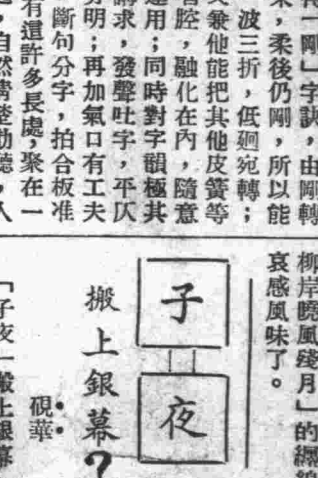 一剛」字訣，由剛轉
，柔後仍剛，所以能
波三折，低廻宛轉；
兼他能把其他皮簧等
腔，融化在內，隨意
運用；同時對字韻極其
講求，發聲吐字，平仄
分明；再加氣口有工夫
斷句分字，拍合板准
有還許多長處，聚在一
，自然清楚動聽，人
柳岸曉風殘月」的纏綿
哀感風味了。
子夜
搬上銀幕？
硯華
「子夜」搬上銀幕